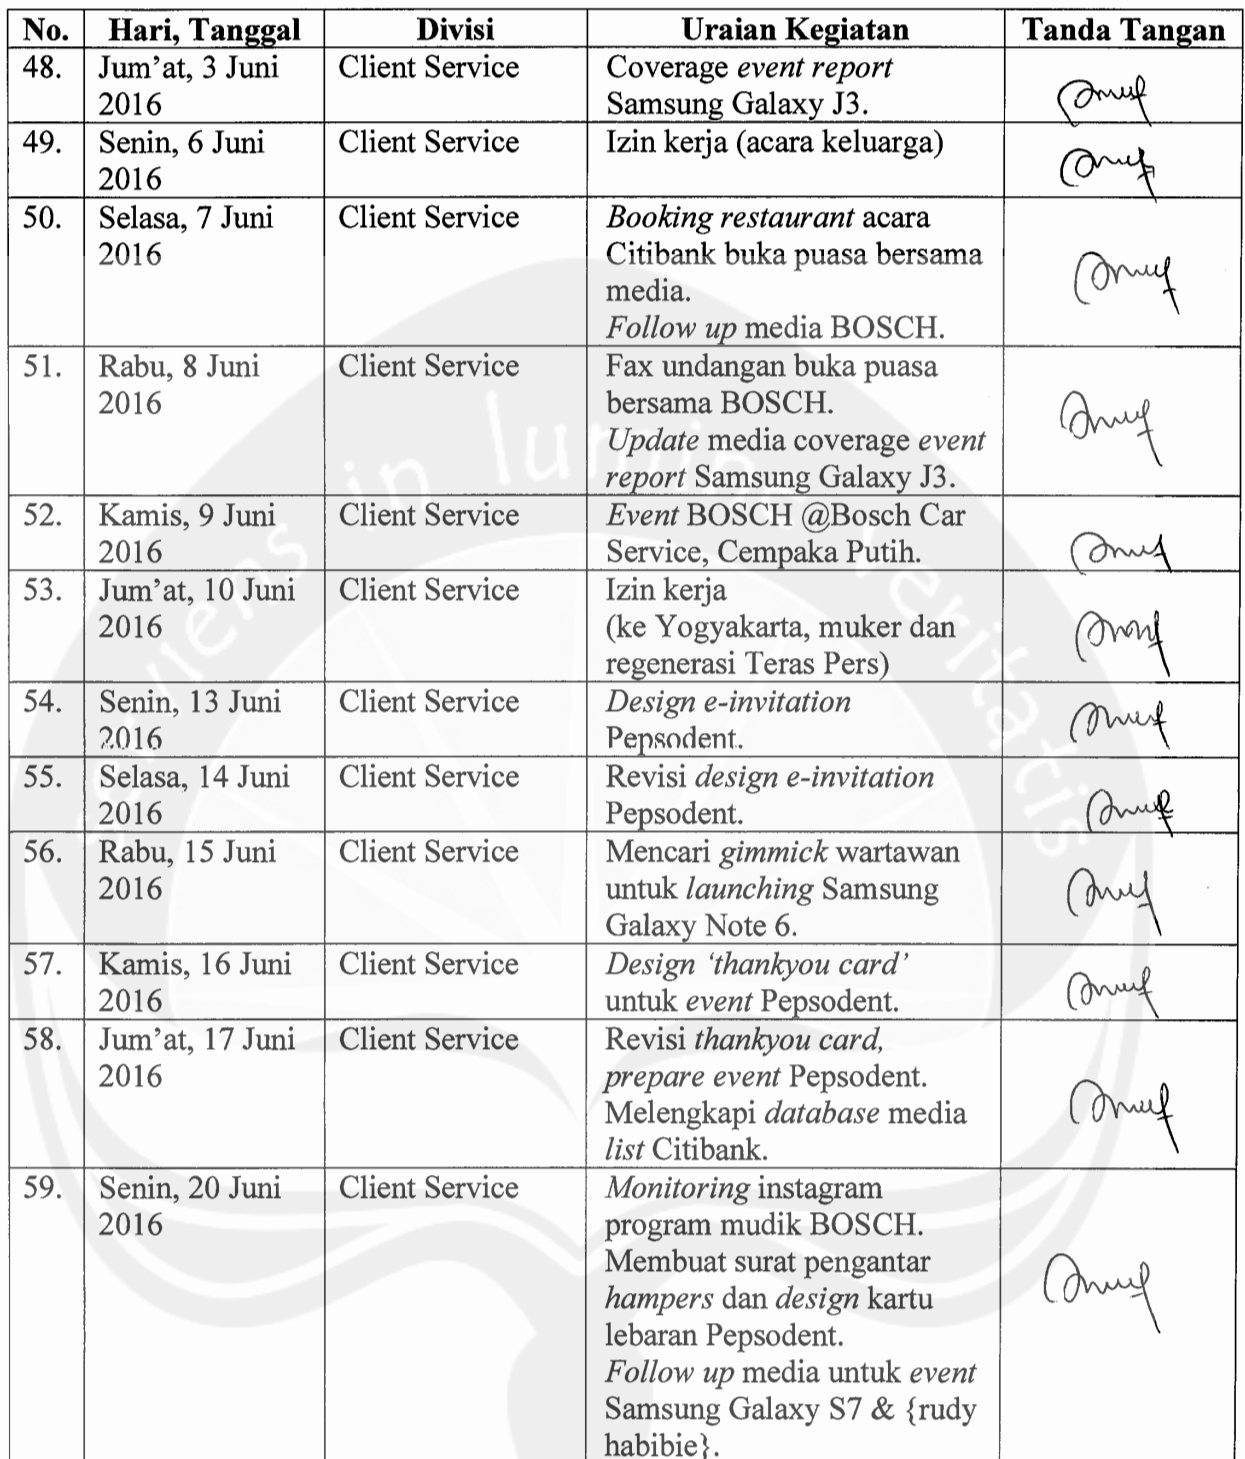 No. Hari, Tanggal Divisi Uraian Kegiatan Tanda Tangan
48. Jum'at, 3 Juni Client Service Coverage event report
2016 Samsung Galaxy J3.
49. Senin, 6 Juni Client Service Izin kerja (acara keluarga)
2016
50. Selasa, 7 Juni Client Service Booking restaurant acara
2016 Citibank buka puasa bersama
media.
Follow up media BOSCH.
51. Rabu, 8 Juni Client Service Fax undangan buka puasa
2016 bersama BOSCH.
Update media coverage event
report Samsung Galaxy J3.
52. Kamis, 9 Juni Client Service Event BOSCH @Bosch Car
2016 Service, Cempaka Putih.
53. Jum'at, 10 Juni Client Service Izin kerja
2016 (ke Yogyakarta, muker dan
regenerasi Teras Pers)
54. Senin, 13 Juni Client Service Design e-invitation
2016 Pepsodent.
55. Selasa, 14 Juni Client Service Revisi design e-invitation
2016 Pepsodent.
56. Rabu, 15 Juni Client Service Mencari gimmick wartawan
2016 untuk launching Samsung
Galaxy Note 6.
57. Kamis, 16 Juni Client Service Design 'thankyou card'
2016 untuk event Pepsodent.
58. Jum'at, 17 Juni Client Service Revisi thankyou card,
2016 prepare event Pepsodent.
Melengkapi database media
list Citibank.
59. Senin, 20 Juni Client Service Monitoring instagram
2016 program mudik BOSCH.
Membuat surat pengantar
hampers dan design kartu
lebaran Pepsodent.
Follow up media untuk event
Samsung Galaxy S7 & {rudy
habibie}.
serviens in lumine veritatis